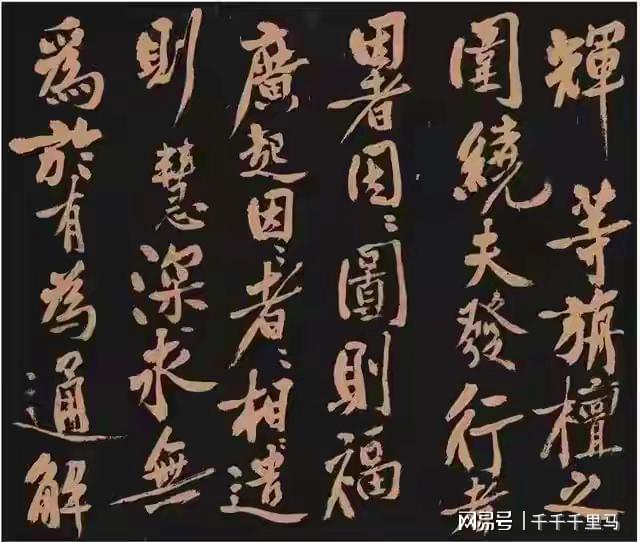 輝等旃檀之
圍繞夫發行者
因者因〻圖則福
廣起因〻者〻相〻遣
則慧深求無
為於有為通解
网易号 | 千千千里马